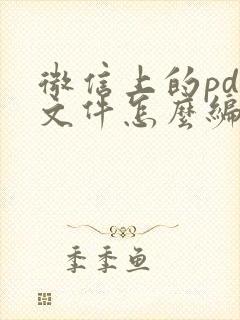 微信上的pd
文件怎麼編
季季鱼